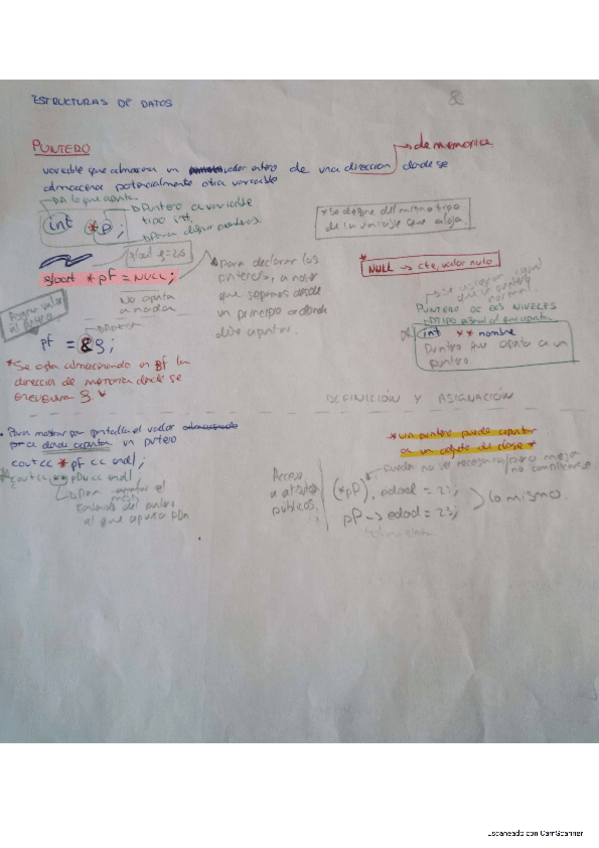 ESTRUCTURAS DE DATOS
PUNTERO
de memoria
variable que almacena un valor entero de una dirección donde se
almacena potencialmente otra variable
a lo que apunta
int *P;
Puntero a variable
tipo int.
Para definir punteros.
* Se define del mismo tipo
de la variable que aloja.
float g=25
float *pf = NULL;
No apunta
a nada
* para declarar los
punteros, a no ser
que sepamos desde
un principio a donde
debe apuntar.
* NULL → cte, valor nulo
normal
PUNTERO DE DOS NIVELES
int ** nombre
Puntero que apunta a un
puntero.
Asignar valor
al puntero
pf = &g;
* Se está almacenando en pf la
dirección de memoria donde se
encuentra g.
DEFINICIÓN Y ASIGNACIÓN
• Para mostrar por pantalla el valor
a donde apunta un puntero
cout << *pf << endl;
* cout << **pDn << endl;
al que apunta pDn
* un puntero puede apuntar
a un objeto de clase *
Acceso
a atributos
públicos.
Puede no ser necesario, pero mejor
no complicarse.
(*pP).edad = 23;
pP → edad = 23;
lo mismo.
Escaneado con CamScanner